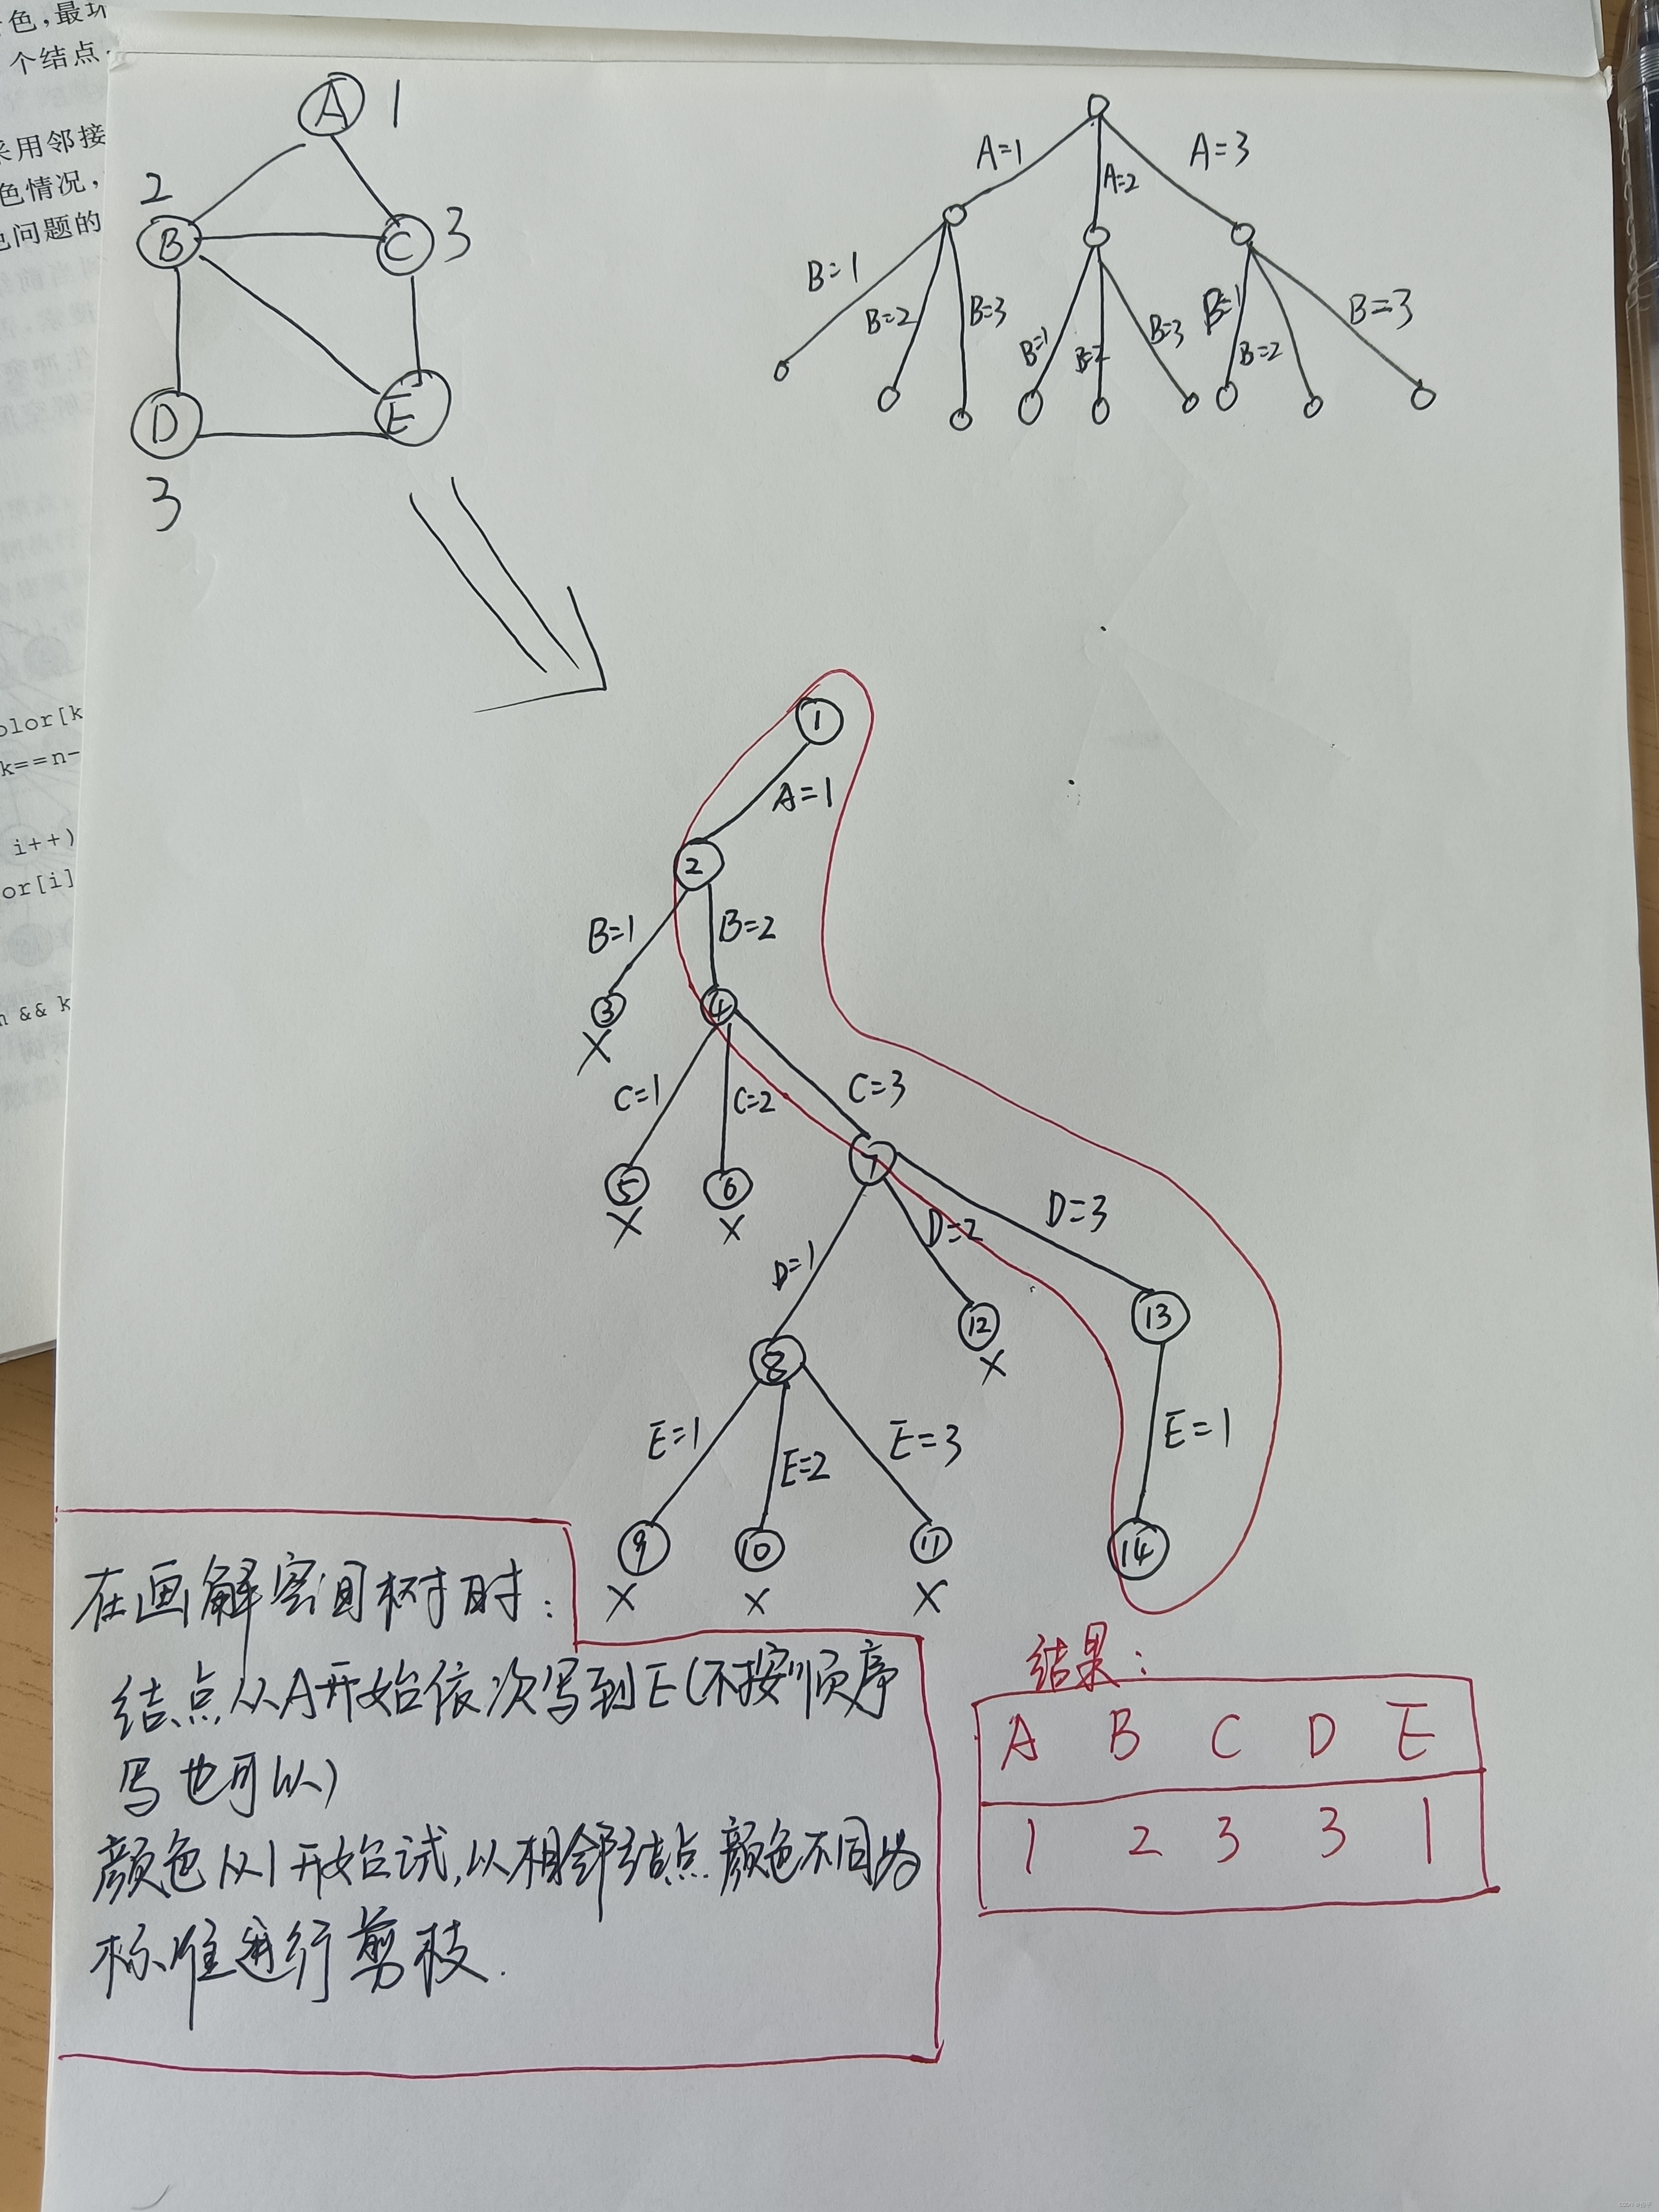 色,最坏
个结点
采用邻接
色情况,
问题的
color[k
k==n-
i++)
or[i]
n && k
A 1
2
B
C 3
D
E
3
A=1
A=2
A=3
B=1
B=2
B=3
B=1
B=2
B=3
B=1
B=2
B=3
1
A=1
2
B=1
B=2
3
4
X
C=1
C=2
C=3
5
6
7
X
X
D=1
D=2
D=3
8
12
13
X
E=1
E=2
E=3
E=1
9
10
11
14
X
X
X
在画解空间树时:
结点从A开始依次写到E(不按顺序
写也可以)
颜色从1开始试,以相邻结点颜色不同为
标准进行剪枝.
结果:
A B C D E
1 2 3 3 1